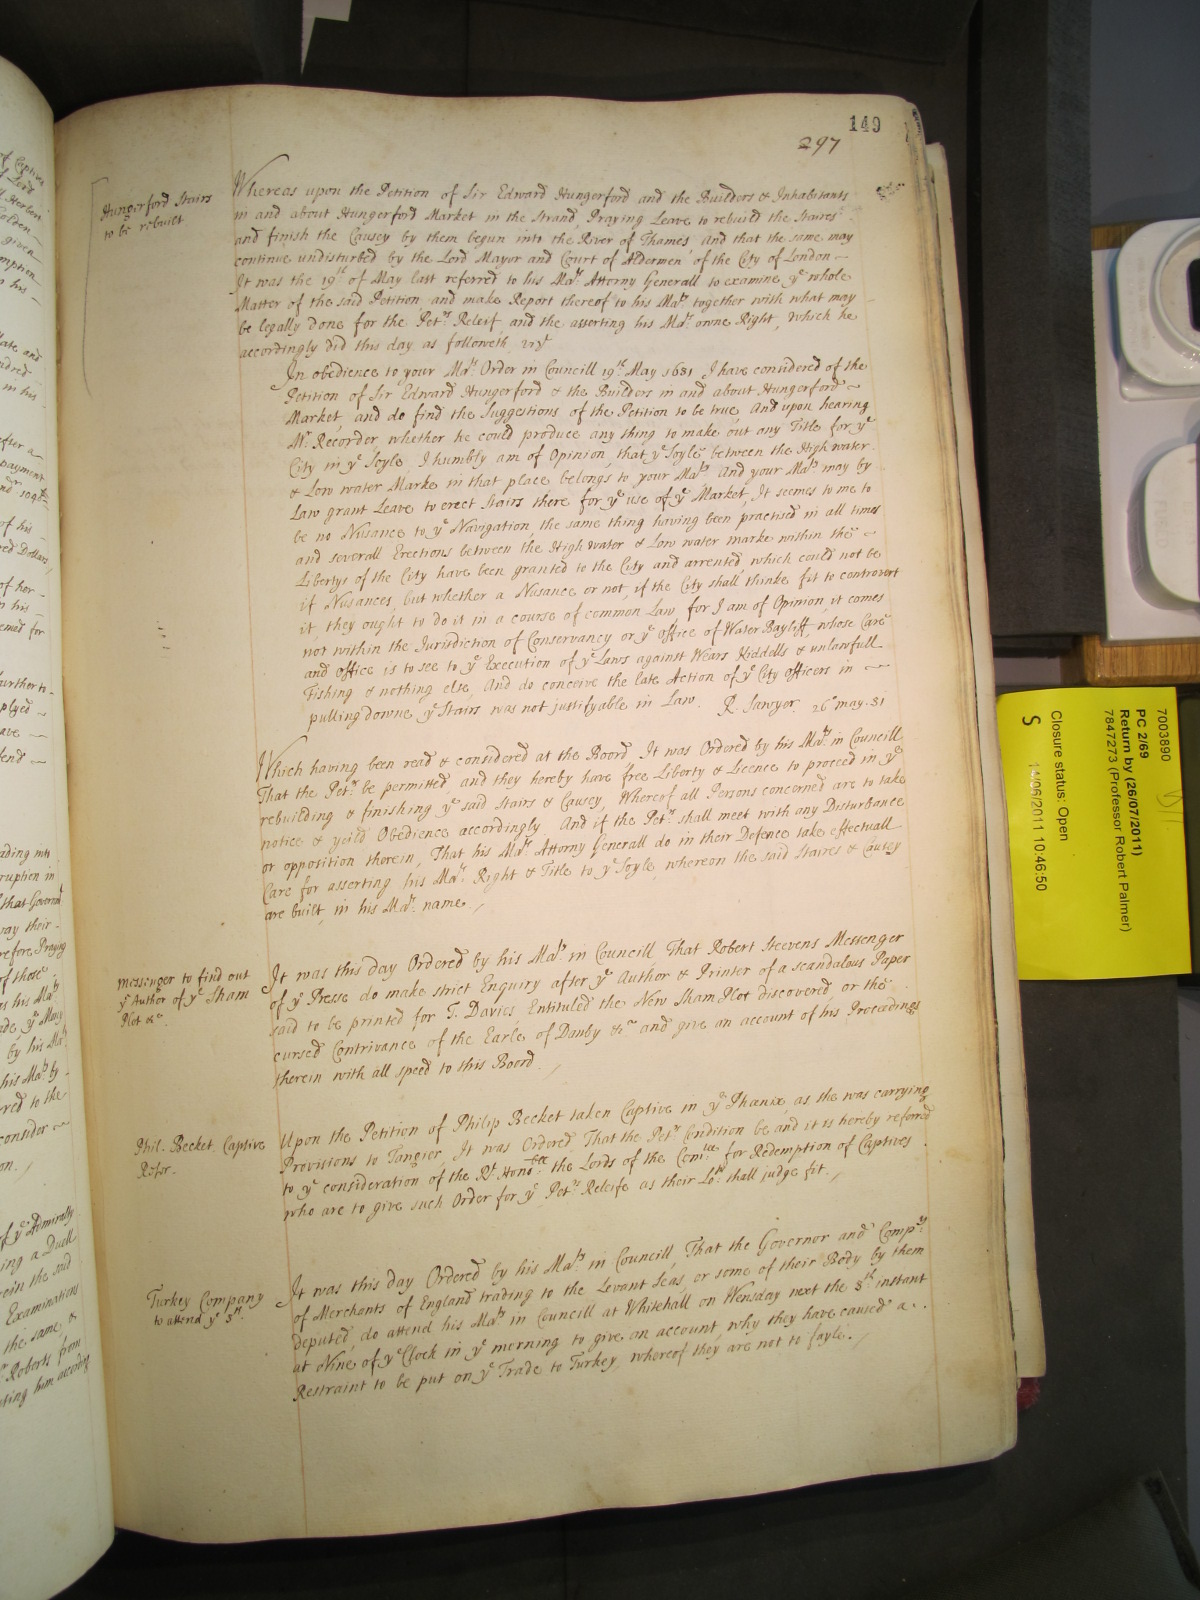 149
297
Hungerford Stairs
to be rebuilt
Whereas upon the Petition of Sir Edward Hungerford and the Builders & Inhabitants
in and about Hungerford Market in the Strand, Praying Leave to rebuild the Staires
and finish the Causey by them begun into the River of Thames And that the same may
continue undisturbed by the Lord Mayor and Court of Aldermen of the City of London
It was the 19th of May last referred to his Maty. Attorny Generall to examine ye whole
Matter of the said Petition and make Report thereof to his Maty. together with what may
be legally done for the Petrs. Releif, and the asserting his Mats. owne Right, Which he
accordingly did this day as followeth vizt
In obedience to your Mats. Order in Councill 19th. May 1681 I have considered of the
Petition of Sir Edward Hungerford & the Builders in and about Hungerford
Market, and do find the Suggestions of the Petition to be true And upon hearing
Mr. Recorder whether he could produce any thing to make out any Title for ye
City in ye Soyle, I humbly am of Opinion, that ye Soyle between the High water
& Low water Marke in that place belongs to your Maty. And your Maty. may by
Law grant Leave to erect Stairs there for ye use of ye Market, It seems to me to
be no Nusance to ye Navigation, the same thing having been practised in all times
and severall Erections between the High water & Low water marke within the
Libertys of the City have been granted to the City and arrented which could not be
if Nusances, but whether a Nusance or not, if the City shall thinke fit to controvert
it, they ought to do it in a course of common Law, for I am of Opinion, it comes
not within the Jurisdiction of Conservancy or ye office of Water Bayleff, whose Care
and office is to see to ye Execution of ye Laws against Wears Kiddells & unlawfull
Fishing & nothing else, And do conceve the late Action of ye City officers in
pulling downe ye Stairs was not justifyable in Law. R. Sawyer. 26 may. 81
Which having been read & considered at the Boord. It was Ordered by his Maty. in Councill
That the Petrs. be permitted, and they hereby have free Liberty & Licence to proceed in ye
rebuilding & finishing ye said Stairs & Causey, Whereof all Persons concerned are to take
notice & yeild Obedience accordingly And if the Petrs. shall meet with any Disturbance
or opposition therein, That his Mats. Attorny Generall do in their Defence take effectuall
Care for asserting his Mats. Right & Title to ye Soyle, whereon the said Staires & Causey
are built, in his Mats. name.
Messenger to find out
ye Author of ye Sham
Plot &c.
It was this day Ordered by his Maty. in Councill, That Robert Steevens Messenger
of ye Presse do make strict Enquiry after ye Author & Printer of a scandalous Paper
said to be printed for T. Davies, Entituled the New Sham Plot discovered, or the
cursed Contrivance of the Earle of Danby &c and give an account of his Proceedings
therein with all speed to this Boord.
Phil. Becket. Captive
Refer.
Upon the Petition of Philip Becket taken Captive in ye Phœnix, as she was carrying
Provisions to Tangier, It was Ordered That the Petrs. Condition be and it is hereby referred
to ye consideration of the Rt. Honoble. the Lords of the Comtee. for Redemption of Captives
who are to give such Order for ye Petrs. Releife as their Lops. shall judge fit.
Turkey Company
to attend ye 8th.
It was this day Ordered by his Maty. in Councill, That the Governor and Compny.
of Merchants of England trading to the Levant Seas, or some of their Body by them
deputed, do attend his Maty. in Councill at Whitehall on Wensday next the 8th instant
at Nine of ye Clock in ye morning to give an account, why they have caused a
Restraint to be put on ye Trade to Turkey, whereof they are not to fayle.
7003890
PC 2/69
Return by (26/07/2011)
78472​73 (Professor Robert Palmer)
Closure status: Open
S 14/06/2011 10:46:50